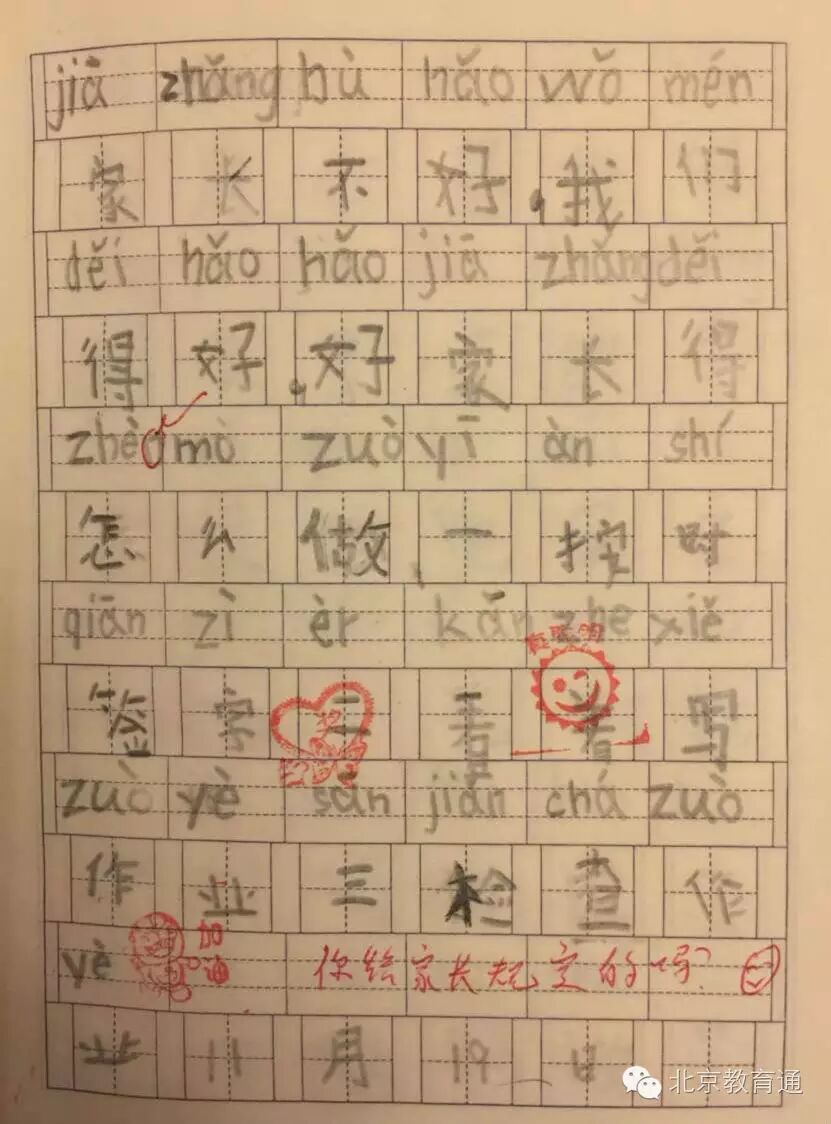 jiā zhǎng bù hǎo wǒ mén
家长不好,我们
děi hǎo hǎo jiā zhǎng děi
得好。好家长得
zhè mò zuò yī àn shí
怎么做、一按时
qiān zì èr kǎn zhe xiě
签字二看着写
真聪明
zuò yè sān jiǎn chá zuò
作业三检查作
yè
加油
你给家长规定的吗?
业 11月19日
北京教育通